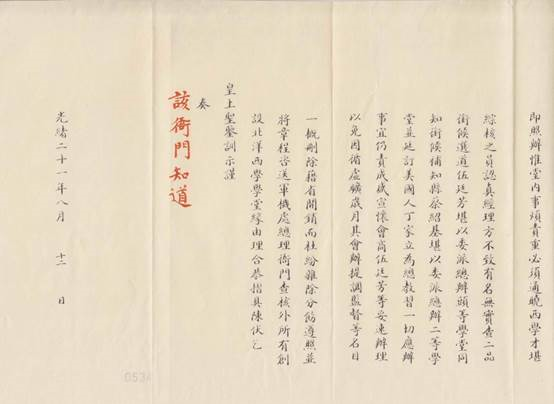 即照辦惟堂內事煩責重必須通曉西學才堪
綜核之員認真經理方不致有名無實查二品
銜候選道伍廷芳堪以委派總辦頭等學堂同
知銜候補知縣蔡紹基堪以委派總辦二等學
堂並延訂美國人丁家立為總教習一切應辦
事宜仍責成盛宣懷會商伍廷芳等妥速辦理
以免因循虛曠歲月其會辦提調監督等名目
一概刪除藉省開銷而杜紛雜除分飭遵照並
將章程咨送軍機處總理衙門查核外所有創
設北洋西學學堂緣由理合恭摺具陳伏乞
皇上聖鑒訓示謹
奏
該衙門知道
光緒二十一年八月 十二 日
0534